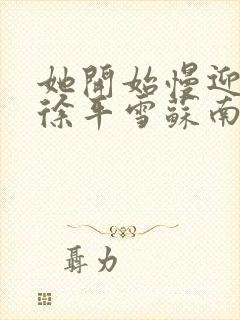 她開始慢迎
徐平雪蘇南
聶力